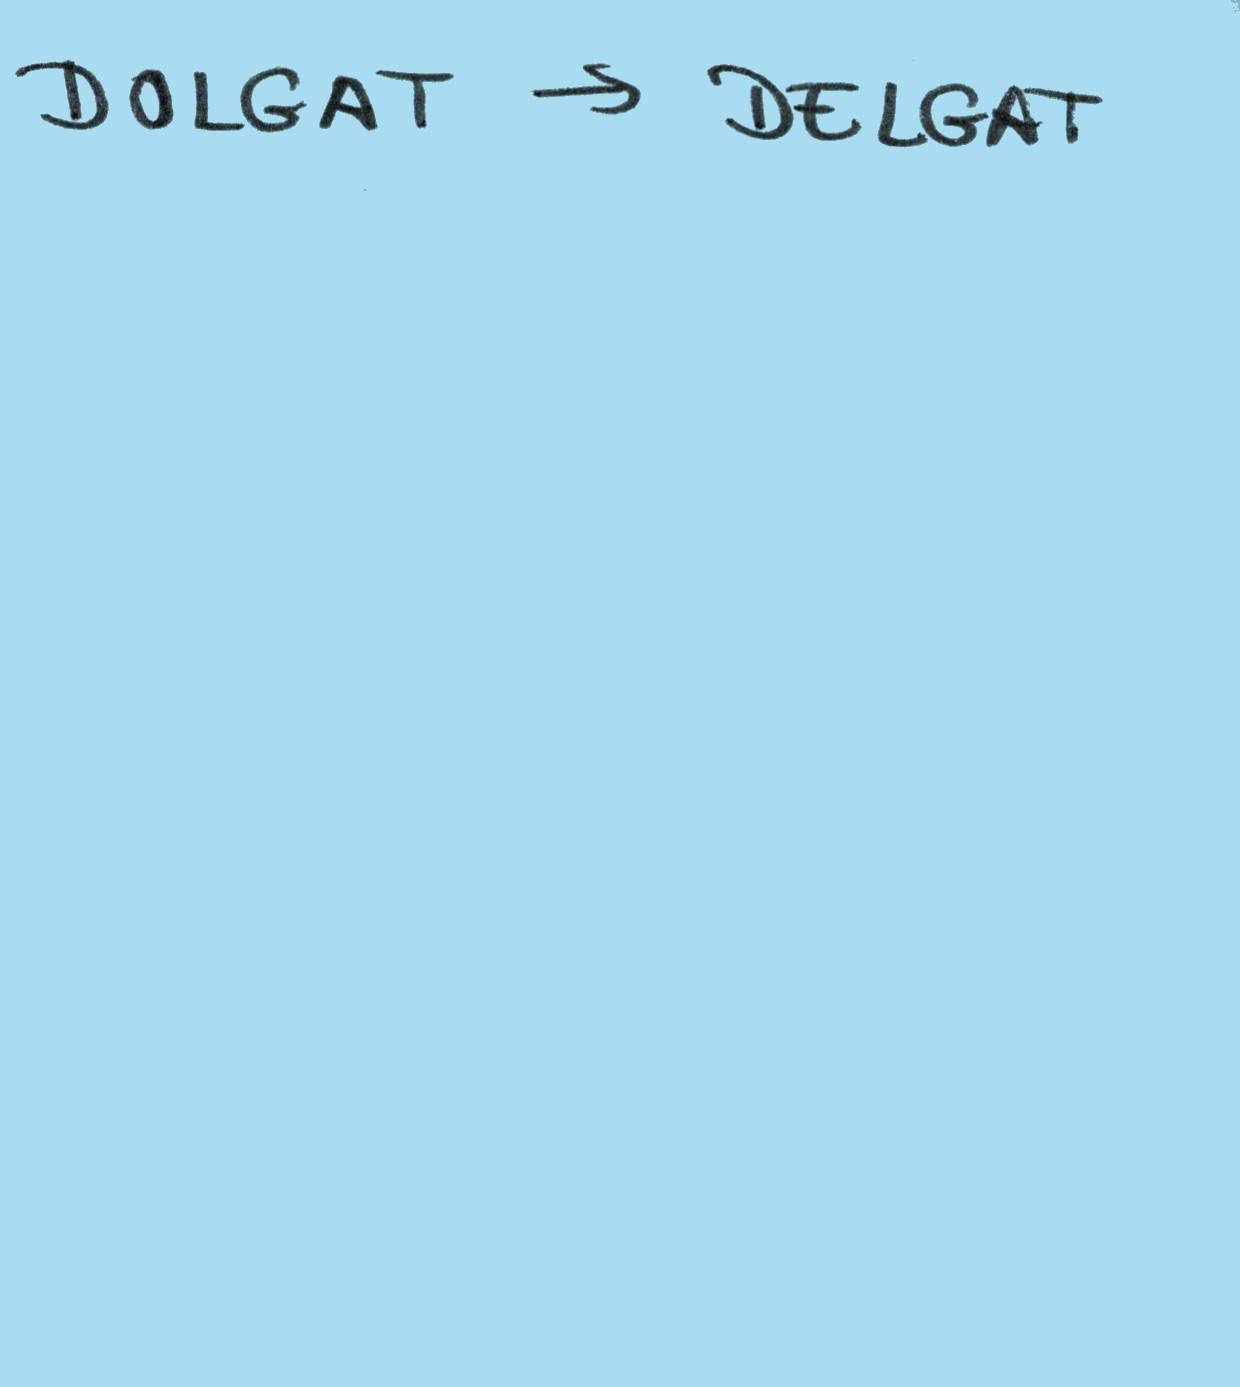 DOLGAT → DELGAT